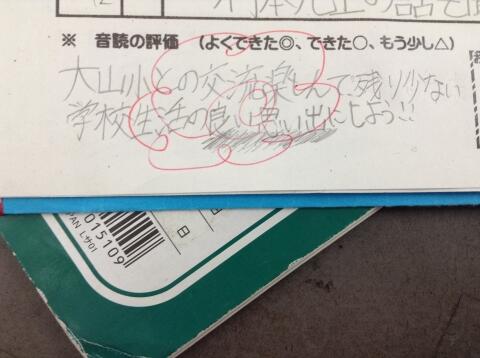 ※ 音読の評価 (よくできた◎、できた○、もう少し△)
大山小との交流楽しんで残り少ない
学校生活の良い思い出にしよう!!
015109
PAN Lサ01
日
日